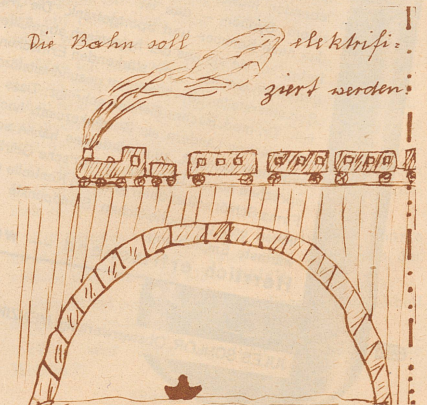 Die Bahn soll elektrifi=
ziert werden.